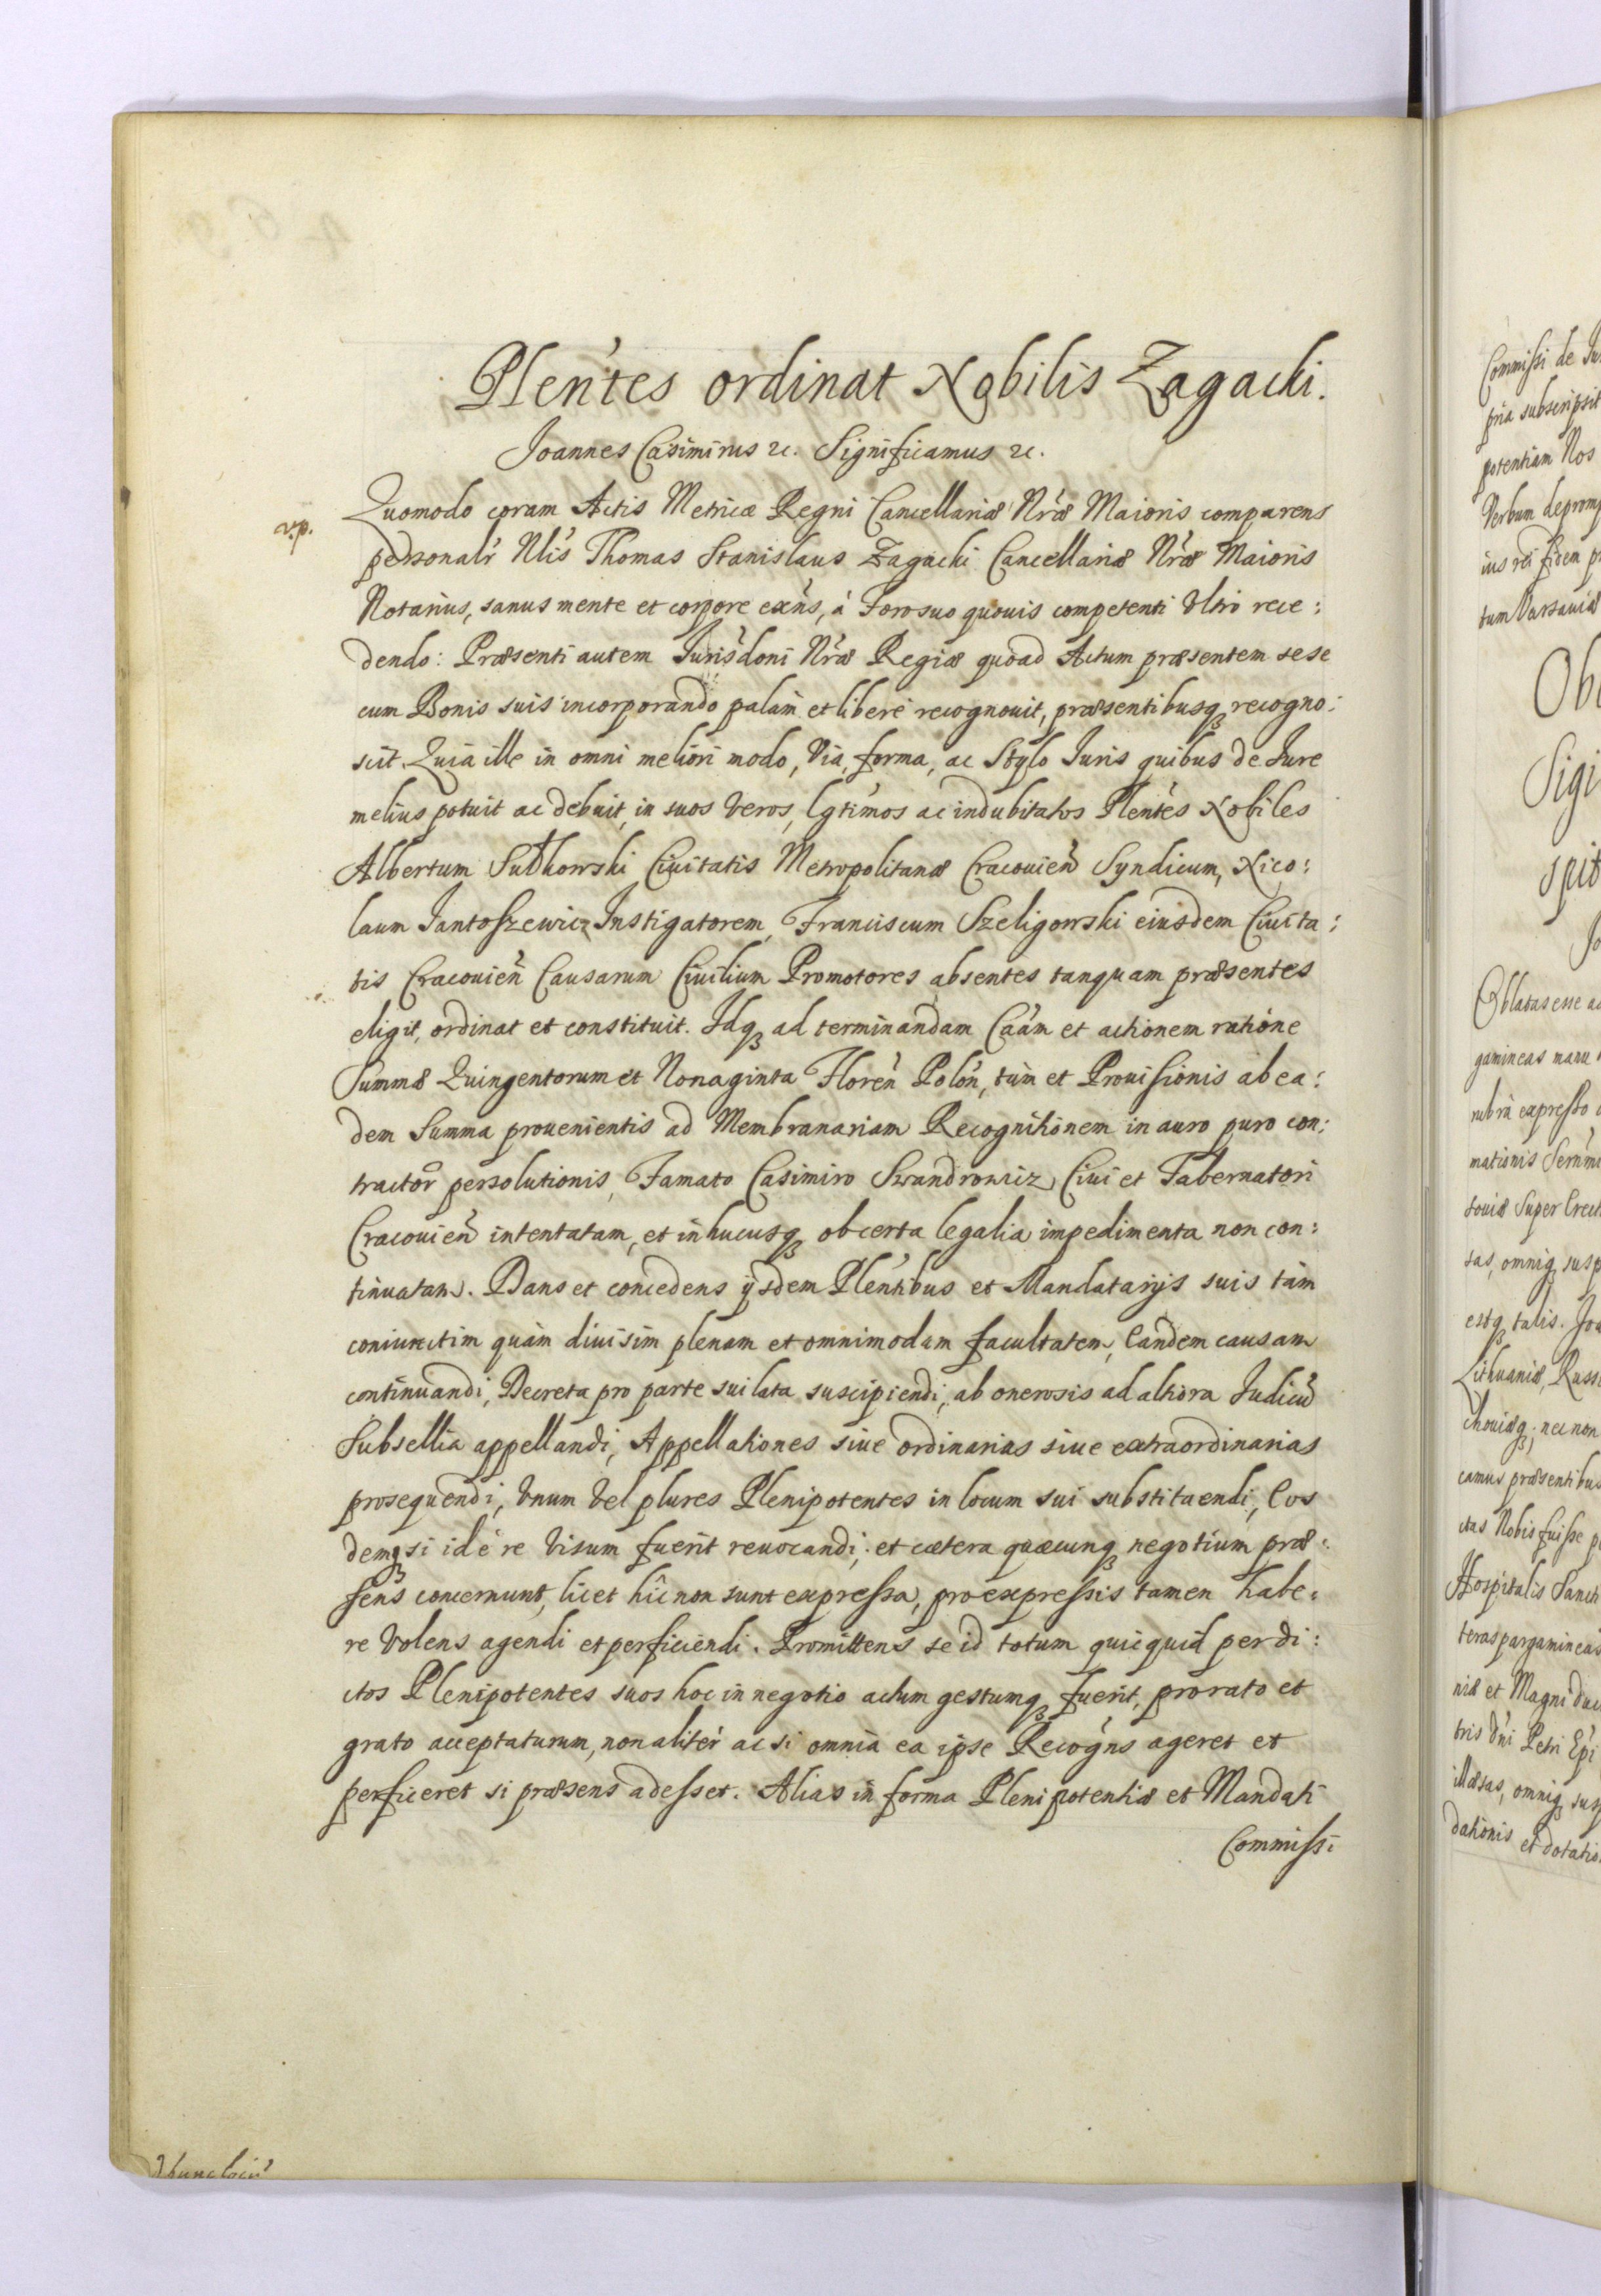 Plen̄tes ordinat Nobilis Zagacki.
Joannes Casimirus ꝛc. Significamus ꝛc.
v.p.
Quomodo coram Actis Metricæ Regni Cancellariæ Nr̃æ Maioris comparens
personalr̃ Nl̃is Thomas Stanislaus Zagacki Cancellariæ Nr̃æ Maioris
Notarius, sanus mente et corpore exñs, à Foro suo quouis competenti Vltrò rece:
dendo: Præsenti autem Jurisdoni Nr̃æ Regiæ quòad Actum præsentem sese
cum Bonis suis incorporando palàm et liberè recognouit, præsentibusq́ꝫ recogno:
scit. Quia ille in omni meliori modo, Via, forma, ac Stylo Juris quibus de Jure
melius potuit ac debuit, in suos Veros, lgtimos ac indubitatos Plen̄tes Nobiles
Albertum Sutkowski Ciuitatis Metropolitanæ Cracouien̄ Syndicum, Nico:
laum Jantoszewicz Instigatorem, Franciscum Szeligowski eiusdem Ciuita:
tis Cracouien̄ Causarum Ciuilium Promotores absentes tanquam præsentes
eligit, ordinat et constituit. Idqꝫ ad terminandam Caãm et actionem ratione
Summæ Quingentorum et Nonaginta Floren̄ Polon̄, tùm et Prouisionis ab ea:
dem Summa prouenientis ad Membranariam Recognitionem in auro puro con:
tractor̃ persolutionis, Famato Casimiro Swandrowicz Ciui et Tabernatori
Cracouien̄ intentatam, et in hucusqꝫ ob certa legalia impedimenta non con:
tinuatam. Dans et concedens ijsdem Plen̄tibus et Mandatarijs suis tàm
coniunctim quàm diuisim plenam et omnimodam facultatem, Eandem causam
continuandi, Decreta pro parte sui lata suscipiendi, ab onerosis ad altiora Judicū
Subsellia appellandi, Appellationes siue ordinarias siue extraordinarias
prosequendi, Vnum Vel plures Plenipotentes in locum sui substituendi, Eos
demqꝫ si id è re Visum fuerit reuocandi, et cætera quæcunqꝫ negotium præ:
sens concernunt, licet hîc non sunt expressa, pro expressis tamen habe:
re Volens agendi et perficiendi. Promittens se id totum quicquid per di:
ctos Plenipotentes suos hoc in negotio actum gestumqꝫ fuerit, pro rato et
grato acceptaturum, non alitèr ac si omnia ea ipse Recogn̄s ageret et
perficeret si præsens adesset. Alias in forma Plenipotentiæ et Mandati
Commissi
Commissi de
pria subscripsit
potentiam Nos
Verbum deprom
ius rei fidem
tum Varsauiæ
Sigi
spit
Oblatas esse
gamineas manu
rubra expresso
mationis
souiæ Super
tas, omniqꝫ susp
estqꝫ talis.
Lithuaniæ, Russ
nec non
camus præsentibus
Nobis fuisse
Hospitalis Sanct
teras pargamineas
niæ et Magni duc
tris Dñi Petri Ep̃i
illæsas, omniqꝫ susp
dationis et dotatio